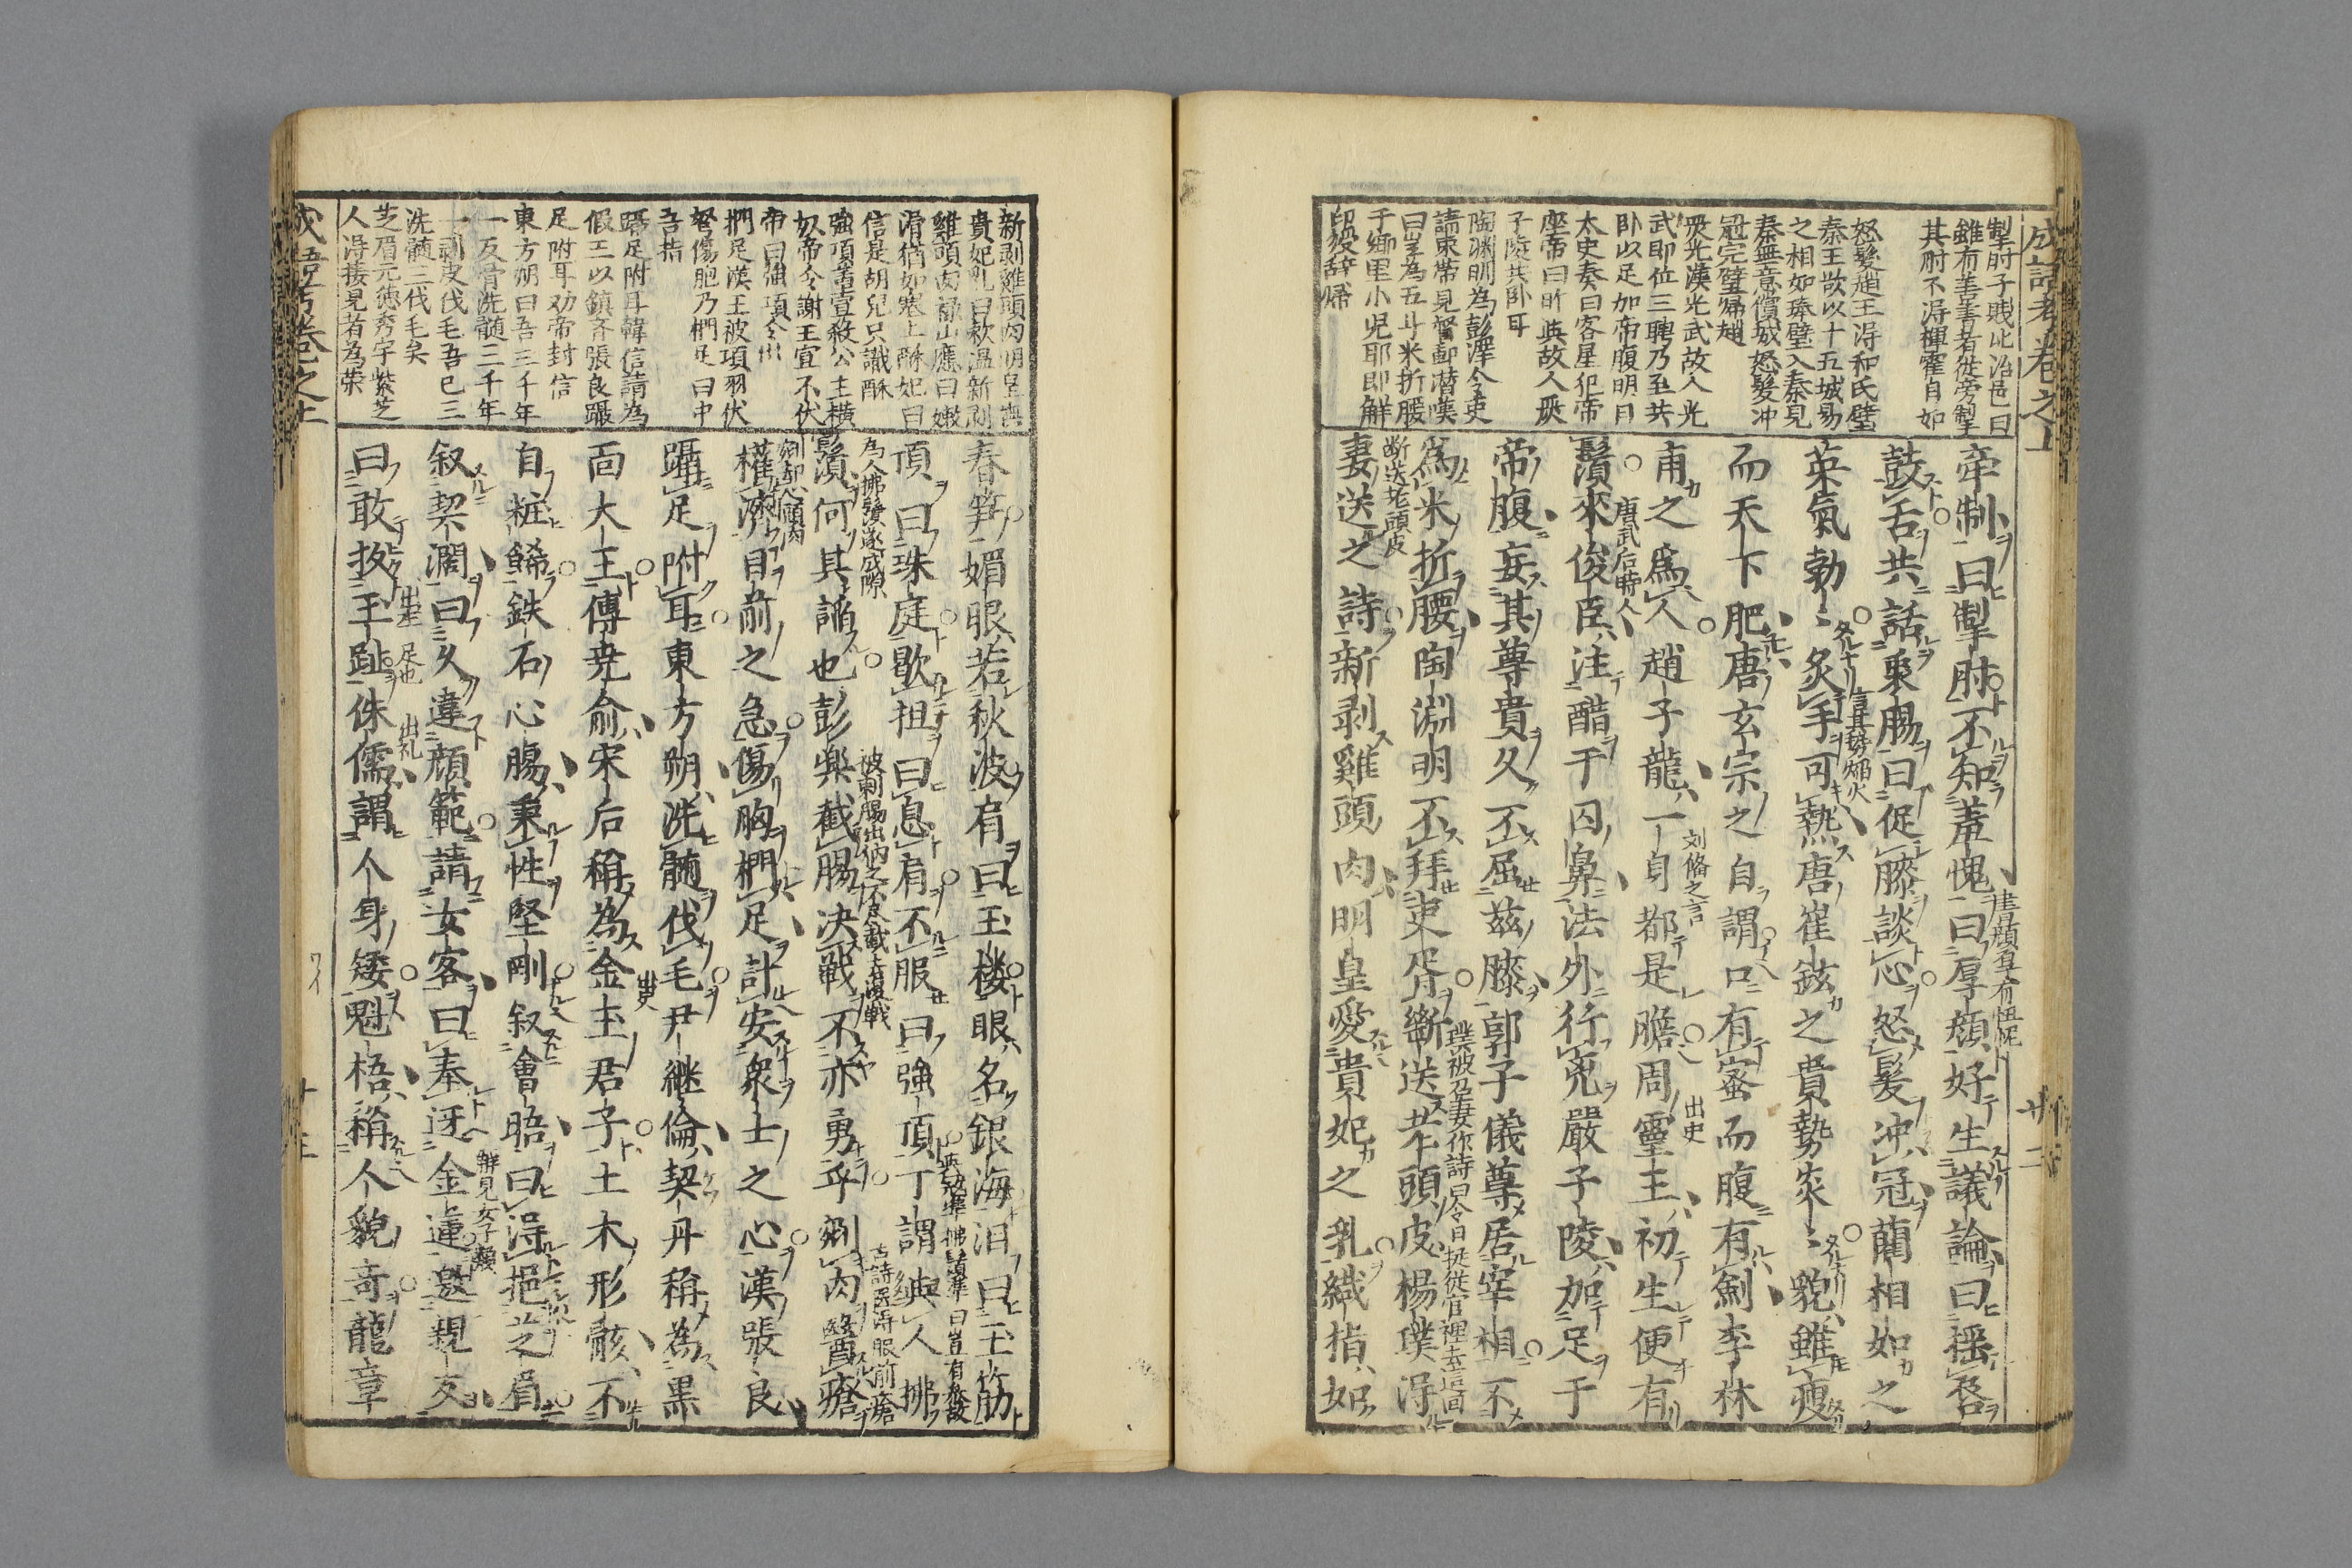 成語考卷之上
掣肘子賤比治邑曰
雖有善書者從旁掣
其肘不得揮霍自如
怒髮趙王得和氏璧
秦王欲以十五城易
之相如琫璧入秦見
秦無意償城怒髮冲
冠完璧歸趙
嚴光漢光武故人光
武即位三聘乃至共
卧以足加帝腹明日
太史奏曰客星犯帝
座帝曰昨與故人嚴
子陵共卧耳
陶渊明為彭澤令吏
請束帶見督郵潜嘆
曰豈為五斗米折腰
于鄉里小児耶即解
印綬辞歸
牽制曰掣肘不知羞愧曰厚顔好生議論曰揺唇
書顔厚有忸怩
鼓舌共話衷腸曰促膝談心怒髮冲冠藺相如之
英氣勃〻炙手可熱唐崔鉉之貴勢炎〻貌雖瘦
言其勢焔火
而天下肥唐玄宗之自謂口有蜜而腹有劍李林
甫之爲人趙子龍一身都是膽周靈王初生便有
刘俻之言
出史
鬚來俊臣注醋于囚鼻法外行兇嚴子陵加足于
唐武后時人
帝腹妄其尊貴久不屈兹膝郭子儀尊居宰相不
爲米折腰陶淵明不拜吏胥斷送老頭皮楊璞得
璞被召妻作詩曰今日捉從官裡去這囬
断送老頭皮
妻送之詩新剥雞頭肉明皇愛貴妃之乳織指如
廿二
新剥雞頭肉明皇與
貴妃乳曰軟温新剥
雞頭肉禄山應曰嫩
滑猶如塞上酥妃曰
信是胡兒只識酥
強項董宣殺公主橫
奴帝令謝主宣不伏
帝曰強項令出
捫足漢王被項羽伏
弩傷胞乃捫足曰中
吾指
躡足附耳韓信請為
假王以鎮斉張良躡
足附耳劝帝封信
東方朔曰吾三千年
一反骨洗髄二千年
一剥皮伐毛吾已三
洗髄三伐毛矣
芝眉元德秀字紫芝
人得接見者為荣
春笋媚眼若秋波肩曰玉楼眼名銀海泪曰玉筯
頂曰珠庭歇担曰息肩不服曰強項丁謂與人拂
為人拂鬚遂成隙
鬚何其謟也彭樂截腸决戰不亦勇乎剜肉醫瘡
被刺腸出納之不尽截去復戰
古詩医得眼前瘡
權濟目前之急傷胸捫足計安衆士之心漢張良
剜却心頭肉
躡足附耳東方朔洗髄伐毛尹継倫契丹稱為黒
面大王傅堯俞宋后稱為金玉君子土木形骸不
出史
自粧餙鉄石心腸秉性堅剛叙會晤曰得挹芝眉
叙契濶曰久違顔範請女客曰奉迓金蓮邀親友
曰敢扳玉趾侏儒謂人身矮魁梧稱人貌竒龍章
足也
出礼
成語考卷之上